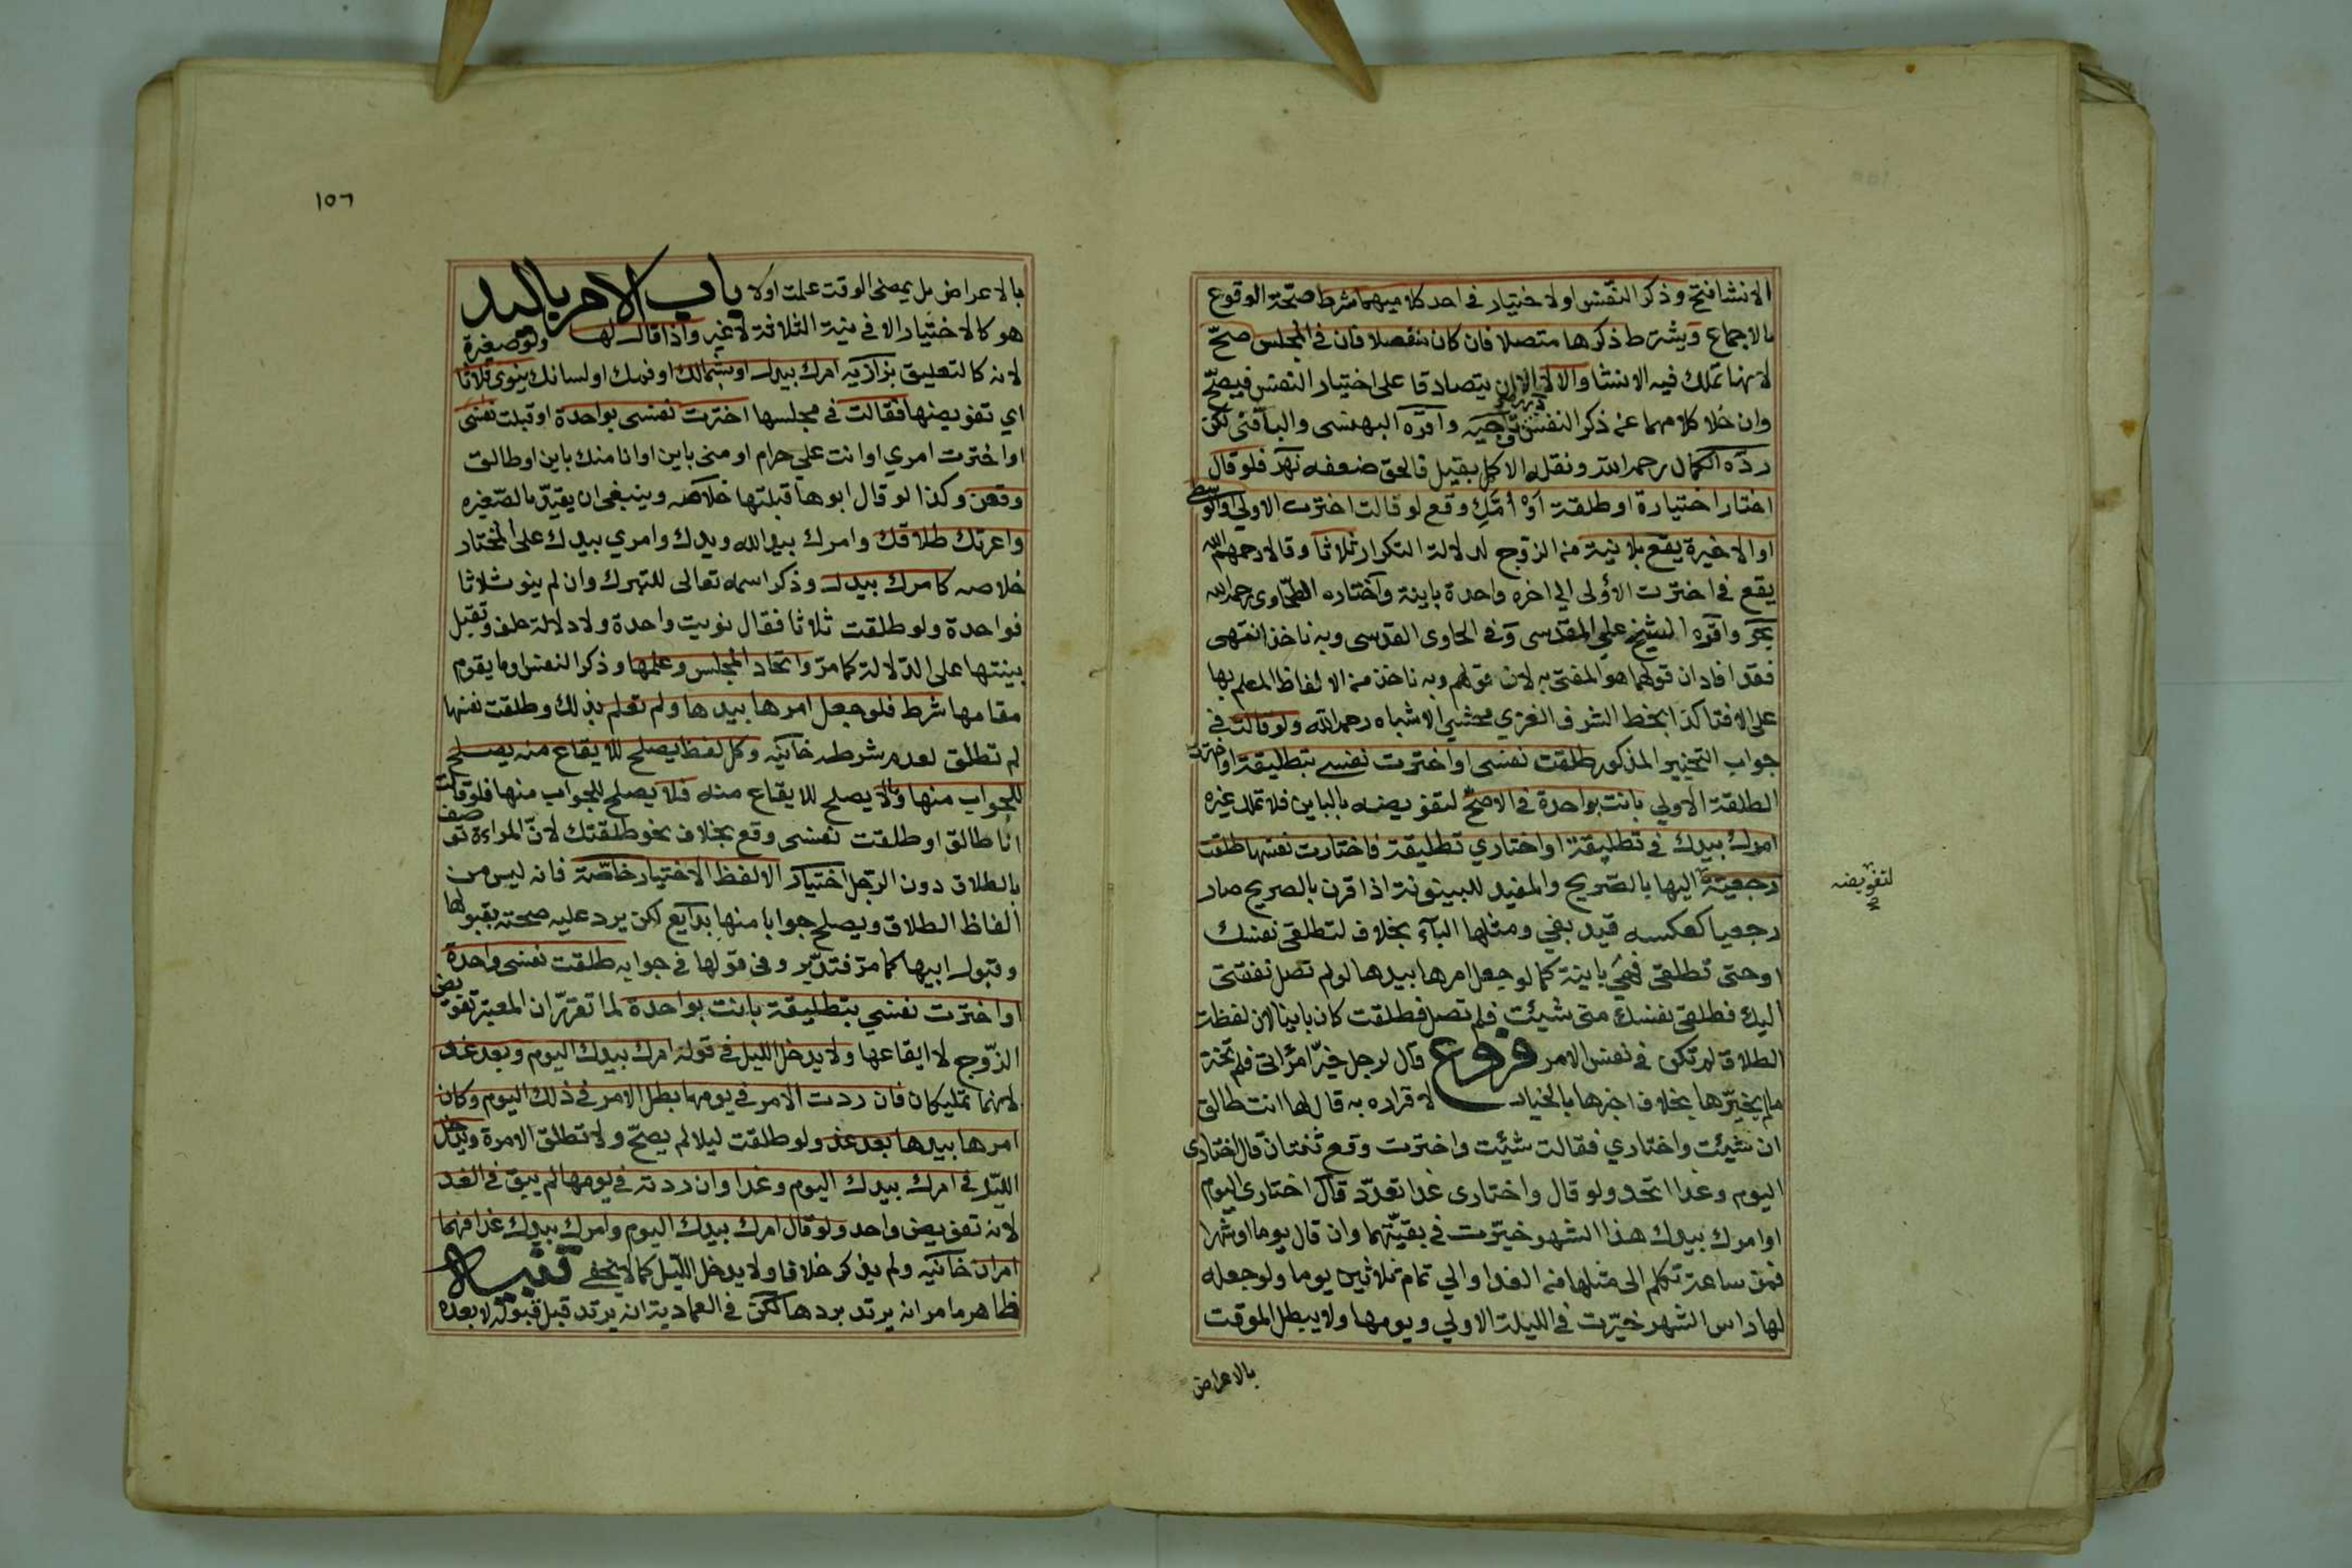 الانشا فتح وذكر النفس او لاختيار في احد كلاميهما شرط صحة الوقوع
بالاجماع ويشترط ذكرها متصلا فان كان منفصلا فان في المجلس صح
لانها تملك فيه الانشا والا لا الا ان يتصادقا على اختيار النفس فيصح
وان خلا كلامهما عن ذكر النفس درر وتاجيه واقره البهنسى والباقني لكن
رده الكمال رحمه الله ونقله الاكمل بقيل فالحق ضعفه نهر فلو قال
اختار اختيارة او طلقة او امك وقع لو قالت اخترت الاولي او الوسطى
او الاخيرة يقع بلا نية من الزوج لدلالة التكرار ثلاثا وقالا رحمهم الله
يقع في اخترت الاولى الي اخره واحدة باينة واختاره الطحاوى رحمه الله
بحر واقره الشيخ علي المقدسي وفي الحاوى القدسى وبه ناخذ انتهى
فقد افاد ان قولهما هو المفتى به لان قولهم وبه ناخذ من الالفاظ المعلم بها
على الافتا كذا بخط الشرف الغزي محشي الاشباه رحمه الله ولو قالت في
جواب التخيير المذكور طلقت نفسى او اخترت نفسي بتطليقة او اخترت
الطلقة الاولي بانت بواحدة في الاصح لتفويضه بالباين فلا تملك غيره
امرك بيدك في تطليقة او اختاري تطليقة فاختارت نفسها طلقت
رجعية اليها بالصريح والمفيد للبينونة اذا قرن بالصريح صار
لتفويضه
رجعيا كعكسه قيد بفي ومثلها البآء بخلاف لتطلقي نفسك
او حتى تطلقي فهي باينة كما لو جعل امرها بيدها لو لم تصل نفقتي
اليك فطلقي نفسك متى شيئت فلم تصل فطلقت كان باينا لان لفظة
الطلاق لم تكن في نفس الامر فروع قال لرجل خير امراتي فلم تختر
مالم يخيرها بخلاف اخبرها بالخيار لاقراره به قال لها انت طالق
ان شيئت واختاري فقالت شيئت واخترت وقع ثنتان قال اختارى
اليوم وغدا اتحد ولو قال واختارى غدا تعدد قال اختارى اليوم
او امرك بيدك هذا الشهر خيرت في بقيتهما وان قال يوما او شهرا
فمن ساعة تكلم الى مثلها من الغد او الي تمام ثلاثين يوما ولو جعله
لها راس الشهر خيرت في الليلة الاولي ويومها ولا يبطل الموقت
بالاعراض
١٥٦
بالاعراض بل بمضى الوقت علمت او لا باب الامر باليد
هو كالاختيار الا في نية الثلاثة لا غير واذا قال لها ولو صغيرة
لانه كالتعليق بزازيه امرك بيدك او بشمالك او فمك او لسانك ينوي ثلاثا
اي تفويضها فقالت في مجلسها اخترت نفسى بواحدة او قبلت نفسى
او اخترت امري او انت علي حرام او منى باين او انا منك باين او طالق
وقعن وكذا لو قال ابوها قبلتها خلاصه وينبغي ان يقيد بالصغيره
واعرتك طلاقك وامرك بيد الله ويدك وامري بيدك على المختار
خلاصه كامرك بيدك وذكر اسمه تعالى للتبرك وان لم ينو ثلاثا
فواحدة ولو طلقت ثلاثا فقال نويت واحدة ولا دلالة حلف وتقبل
بينتها على الدلالة كما مر واتحاد المجلس وعلمها وذكر النفس وما يقوم
مقامها شرط فلو جعل امرها بيدها ولم تعلم بذلك وطلقت نفسها
لم تطلق لعدم شرطه خانيه وكل لفظ يصلح للايقاع منه يصلح
للجواب منها ومالا يصلح للايقاع منه فلا يصلح للجواب منها فلو قالت
انا طالق او طلقت نفسى وقع بخلاف نحو طلقتك لان المراءة توصف
بالطلاق دون الرجل اختيار الا لفظ الاختيار خاصة فانه ليس من
الفاظ الطلاق ويصلح جوابا منها بدايع لكن يرد عليه صحته بقبولها
وقبول ابيها كما مر فتدبر وفي قولها في جوابه طلقت نفسى واحدة
او اخترت نفسي بتطليقة بانت بواحدة لما تقرر ان المعتبر تفويض
الزوج لا ايقاعها ولا يدخل الليل في قوله امرك بيدك اليوم وبعد غد
لانهما تمليكان فان ردت الامر في يومها بطل الامر في ذلك اليوم وكان
امرها بيدها بعد غد ولو طلقت ليلا لم يصح ولا تطلق الامرة ويدخل
الليل في امرك بيدك اليوم وغدا وان ردته في يومها لم يبق في الغد
لانه تفويض واحد ولو قال امرك بيدك اليوم وامرك بيدك غدا فهما
امران خانيه ولم يذكر خلافا ولا يدخل الليل كما لا يخفي تنبيه
ظاهر ما مر انه يرتد بردها لكن في العمادية انه يرتد قبل قبوله لا بعده